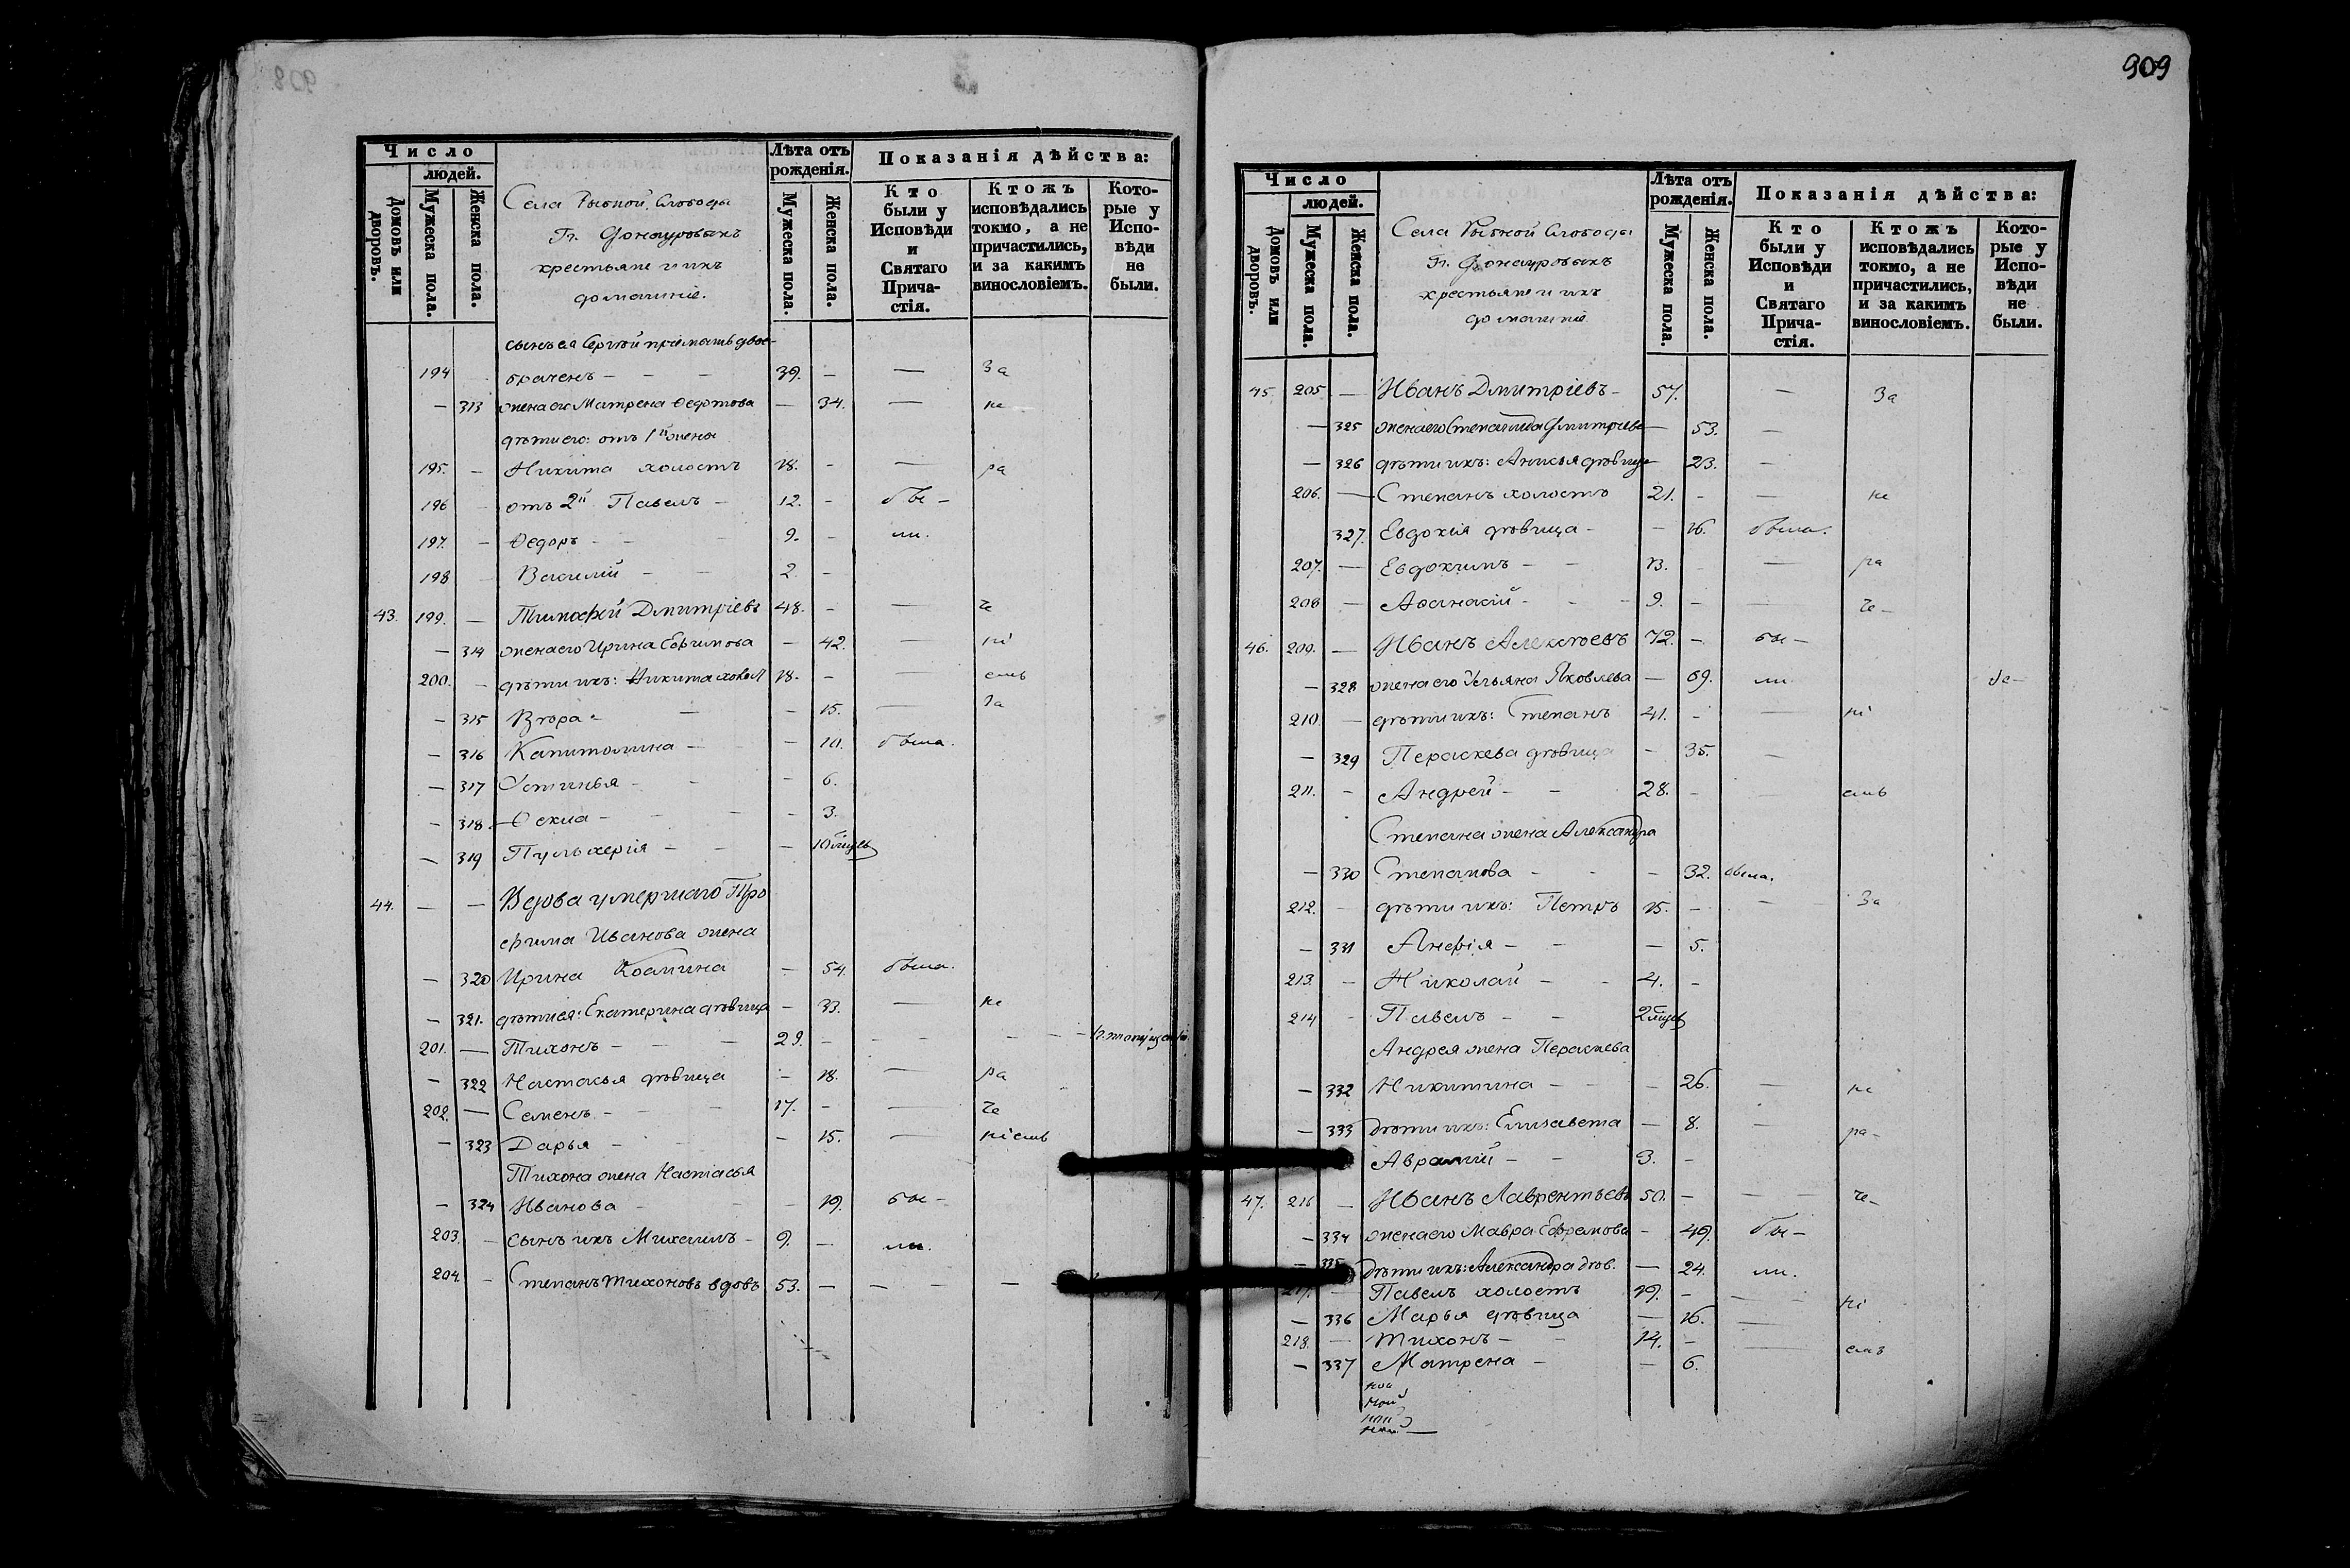 908
Число
людей.
Домовъ или дворовъ.
Мужеска пола.
Женска пола.
Села Рыбной Слободы
Гг.
крестьяне и ихъ
домашніе.
Лѣта отъ рожденія.
Мужеска пола.
Женска пола.
Показанія дѣйства:
Кто были у Исповѣди и Святаго Прича-стія.
Ктожъ исповѣдались токмо, а не причастились, и за какимъ винословіемъ.
Кото-рые у Испо-вѣди не были.
сынъ ея Сергѣй пріематъ двое-
194 браченъ - - - 39. - — За
— 313 жена его Матрена Ѳедотова — 34. — не
дѣти его: отъ 1й жены
195. - Никита холостъ 18. - — ра
196 - отъ 2й Павелъ - 12. - бы -
197. - Ѳедоръ - - 9. - ли.
198 - Василій - - 2. -
43. 199. — Тимоѳей Дмитріевъ 48. - — че
— 314 жена его Ирина Ефимова - 42. — ні
200. - дѣти ихъ: Никита холост 18. - — емъ
— 315 Вѣра - — - 15. — За
— 316 Капитолина - - 10. была.
— 317 Устинья - - - 6.
— 318. Ѳекла - - - 3.
— 319 Пульхерія - - — 10 мѣсцев
44. — — Вдова умершаго Тро
фима Иванова жена
— 320 Ирина — 54. была.
— 321. дѣти ея: Екатерина дѣвица - 33. — не
201. — Тихонъ - - - 29. - - - - -
— 322 Настасья дѣвица - 18. — ра
202. — Семенъ - - 17. - — че
— 323 Дарья - - - 15. — ніемъ
Тихона жена Настасья
— 324 Иванова - - - 19. бы -
203. - сынъ ихъ Михаилъ - 9. — ли.
204. - Степанъ Тихоновъ вдовъ 53. — — — —
909
Число
людей.
Домовъ или дворовъ.
Мужеска пола.
Женска пола.
Села Рыбной Слободы
Гг.
крестьяне и ихъ
домашніе
Лѣта отъ рожденія.
Мужеска пола.
Женска пола.
Показанія дѣйства:
Кто были у Исповѣди и Святаго Прича-стія.
Ктожъ исповѣдались токмо, а не причастились, и за какимъ винословіемъ.
Кото-рые у Испо-вѣди не были.
45. 205 — Иванъ Дмитріевъ - 57. — За
— 325 жена его Степанида Дмитріева — 53. —
— 326 дѣти ихъ: Анисья дѣвица — 23. —
206. — Степанъ холостъ 21. - — не
327. Евдокія дѣвица - - 16. была.
207. — Евдокимъ - - 13. - — ра
208 — Аѳанасій - - 9. - — че -
46. 209. — Иванъ Алексѣевъ 72. - бы -
— 328 жена его Ульяна Яковлева — 69. ли
210. — дѣти ихъ: Степанъ 41. - — ні
— 329 Пераскева дѣвица - 35. —
211. - Андрей - - 28. - - емъ
Степана жена Александра
— 330 Степанова - - - 32. была.
212. - дѣти ихъ: Петръ 15. - - За
— 331 Анфія - - — 5.
213. - Николай - - 4. -
214 - Павелъ - - 2 мѣсцев
Андрея жена Пераскева
— 332 Никитина - - - 26. — не
— 333 дѣти ихъ: Елисавета — 8. — ра -
Аврамій - - 3. -
47. 216 — Иванъ Лаврентьевъ 50. - - - че -
— 334 жена его Мавра Ефремова - 49. бы -
— 335 дѣти ихъ: Александра дѣв. — 24. ли.
217. — Павелъ холостъ 19. - - - ні
— 336 Марья дѣвица — 16. —
218. — Тихонъ - - 14. - — емъ
— 337 Матрена - — 6.